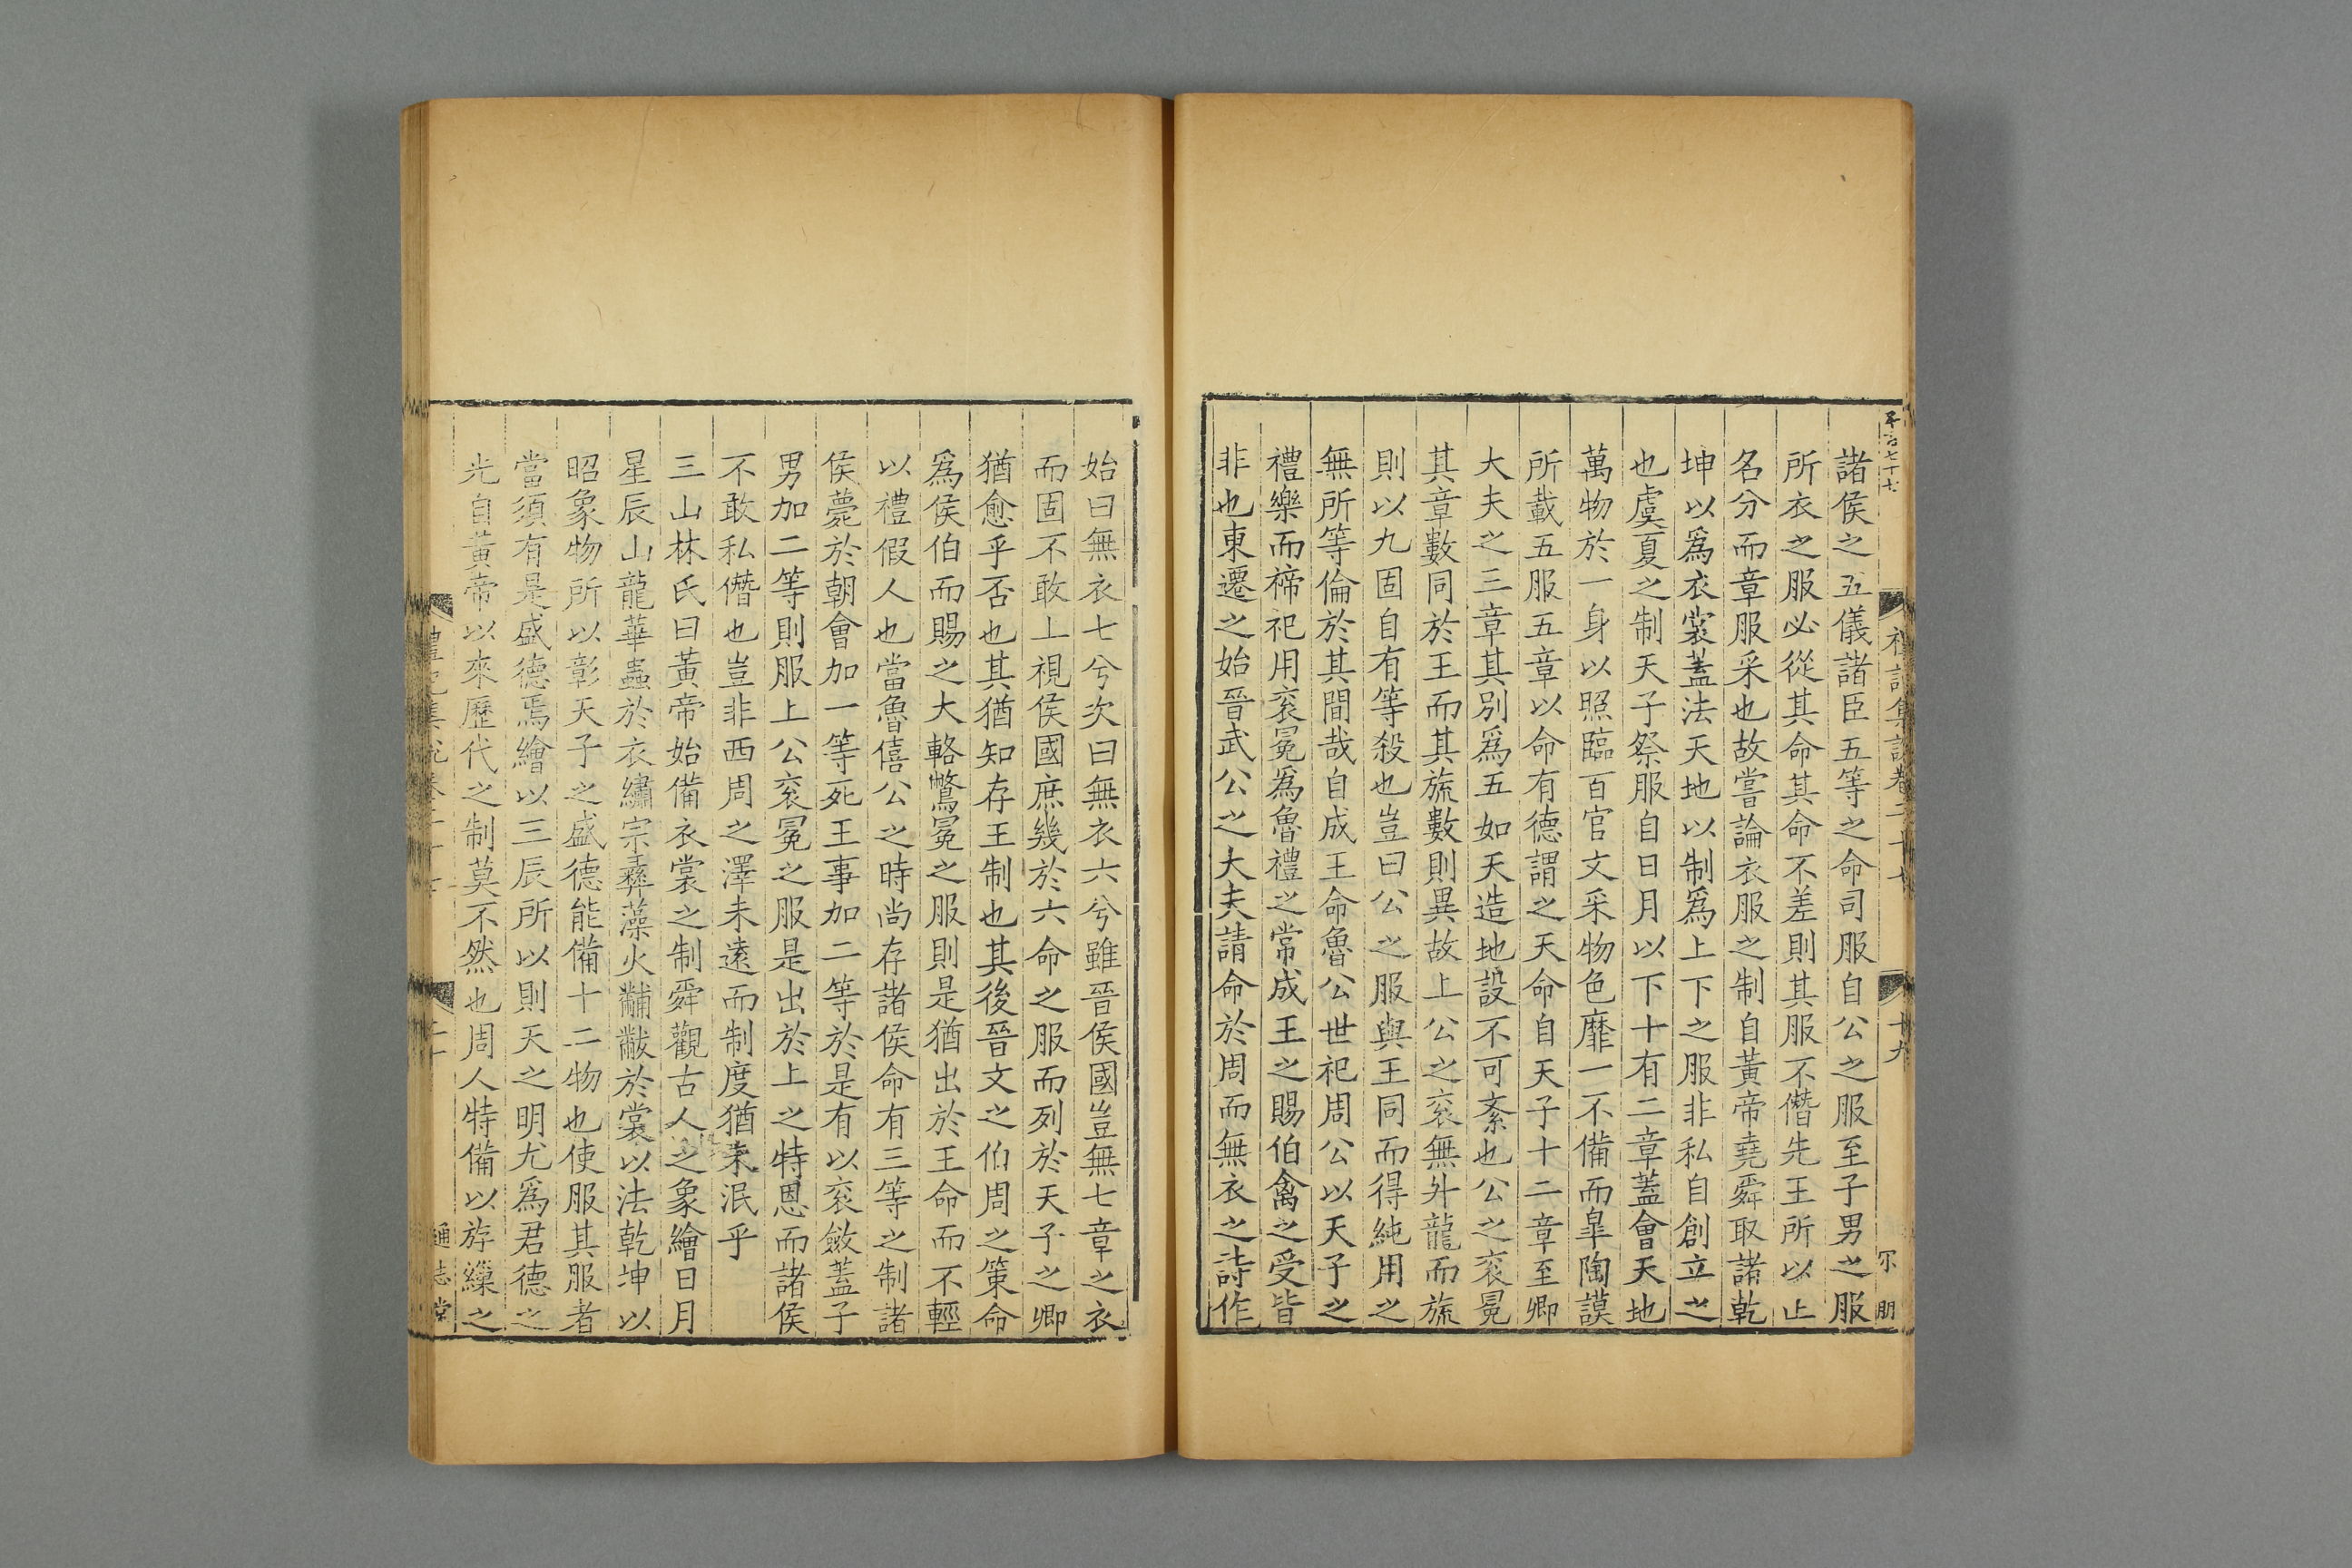 諸侯之五儀諸臣五等之命司服自公之服至子男之服
所衣之服必從其命其命不差則其服不僭先王所以止
名分而章服采也故嘗論衣服之制自黃帝堯舜取諸乾
坤以爲衣裳蓋法天地以制爲上下之服非私自創立之
也虞夏之制天子祭服自日月以下十有二章蓋會天地
萬物於一身以照臨百官文采物色靡一不備而臯陶謨
所載五服五章以命有德謂之天命自天子十二章至卿
大夫之三章其別爲五如天造地設不可紊也公之衮冕
其章數同於王而其旒數則異故上公之衮無升龍而旒
則以九固自有等殺也豈曰公之服與王同而得純用之
無所等倫於其間哉自成王命魯公世祀周公以天子之
禮樂而禘祀用衮冕爲魯禮之常成王之賜伯禽之受皆
非也東遷之始晉武公之大夫請命於周而無衣之詩作
十九
始曰無衣七兮次曰無衣六兮雖晉侯國豈無七章之衣
而固不敢上視侯國庶幾於六命之服而列於天子之卿
猶愈乎否也其猶知存王制也其後晉文之伯周之策命
爲侯伯而賜之大輅鷩冕之服則是猶出於王命而不輕
以禮假人也當魯僖公之時尚存諸侯命有三等之制諸
侯薨於朝會加一等死王事加二等於是有以衮斂蓋子
男加二等則服上公衮冕之服是出於上之特恩而諸侯
不敢私僭也豈非西周之澤未遠而制度猶未泯乎
三山林氏曰黃帝始備衣裳之制舜觀古人之象繪日月
星辰山龍華蟲於衣繡宗彝藻火黼黻於裳以法乾坤以
昭象物所以彰天子之盛德能備十二物也使服其服者
當須有是盛德焉繪以三辰所以則天之明尤爲君德之
光自黃帝以來歷代之制莫不然也周人特備以斿繅之
通志堂